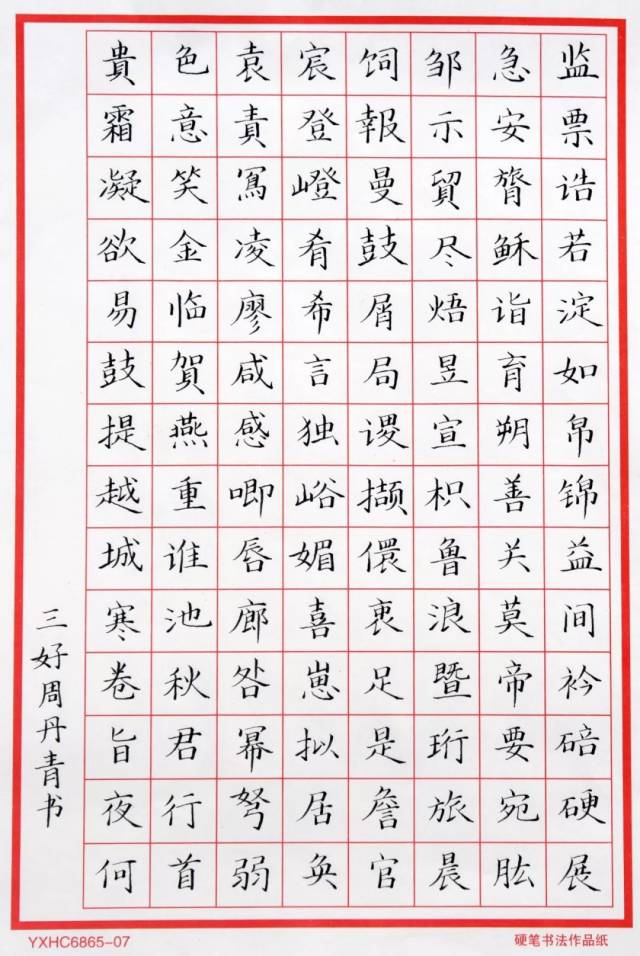 监票诰若淀如帛锦益间衿碚硬展
急安膂稣诣育朔善关莫帝要宛肱
邹示貿尽焐昱宣枳鲁浪暨珩旅晨
饲報曼鼓屑局谡撷儇衷足是詹官
宸登嶝肴希言独峪媚喜崽拟居奂
袁責寫凌廖咸感唧唇廊咎幂弩弱
色意笑金临賀燕重谁池秋君行首
貴霜凝欲易鼓提越城寒卷旨夜何
三好周丹青书
YXHC6865-07
硬笔书法作品纸